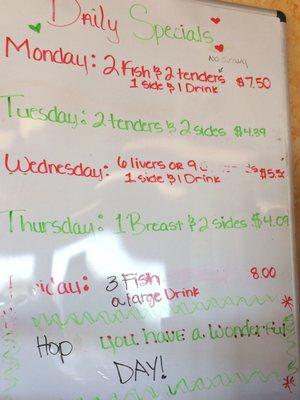 Daily Specials
Monday: 2 Fish & 2 tenders
1 side & 1 Drink $7.50
Tuesday: 2 tenders & 2 sides $4.39
Wednesday: 6 livers or 9
1 side & 1 Drink
Thursday: 1 Breast & 2 sides $4.09
3 Fish 8.00
a large Drink
Hop you have a wonderful
DAY!